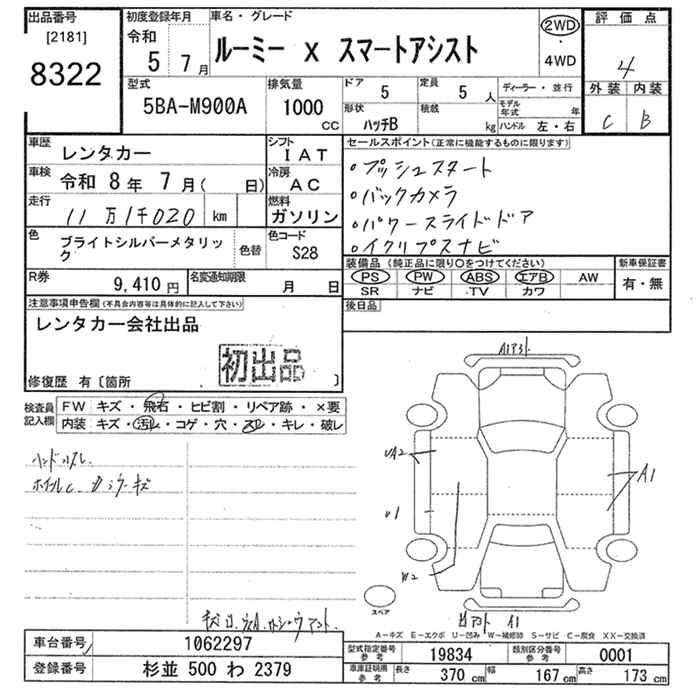 出品番号
[2181]
8322
初度登録年月
令和
5 7月
車名・グレード
ルーミー X スマートアシスト
2WD
・
4WD
評価点
4
外装 内装
C B
型式
5BA-M900A
排気量
1000
CC
ドア
5
定員
5 人
形状
ハッチB
積載
kg
ディーラー・並行
モデル年式 年
ハンドル 左・右
車歴
レンタカー
シフト
I A T
車検
令和 8年 7月( 日)
冷房
A C
走行
11万1千020 km
燃料
ガソリン
色
ブライトシルバーメタリック
色替
色コード
S28
R券
9,410円
名変通知期限
月 日
セールスポイント(正常に機能するものに限ります)
・プッシュスタート
・バックカメラ
・パワースライドドア
・イクリプスナビ
装備品(純正品に限り○をつけてください)
PS PW ABS エアB AW
SR ナビ TV カワ
新車保証書
有・無
後日品
注意事項申告欄(不具合内容等は具体的に記入して下さい)
レンタカー会社出品
初出品
修復歴 有〔箇所 〕
検査員
記入欄
FW キズ・飛石・ヒビ割・リペア跡・×要
内装 キズ・汚レ・コゲ・穴・スレ・キレ・破レ
ハンドルスレ
UA2
U1
W2
A1
スペア
A1
A-キズ E-エクボ U-凹み W-補修跡 S-サビ C-腐食 XX-交換済
車台番号
1062297
登録番号
杉並 500 わ 2379
型式指定番号
参考
19834
類別区分番号
参考
0001
車庫証明用
参考
長さ
370 cm
幅
167 cm
高さ
173 cm